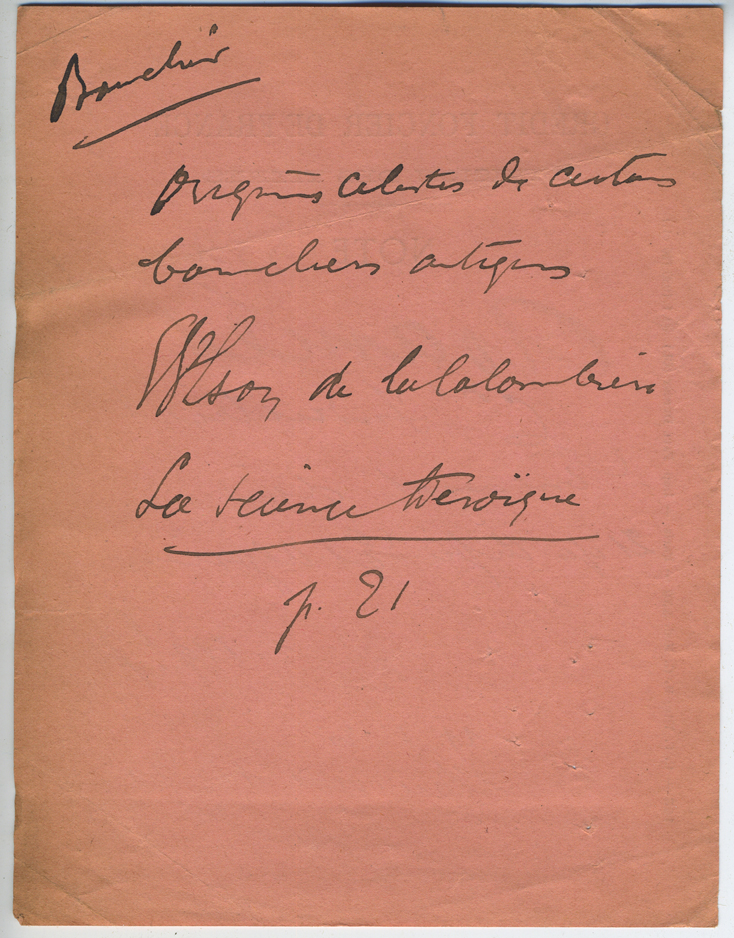 Bouclier
Origines célestes de certains
boucliers antiques
Wlson de la Colombière
La Science Héroïque
p. 21